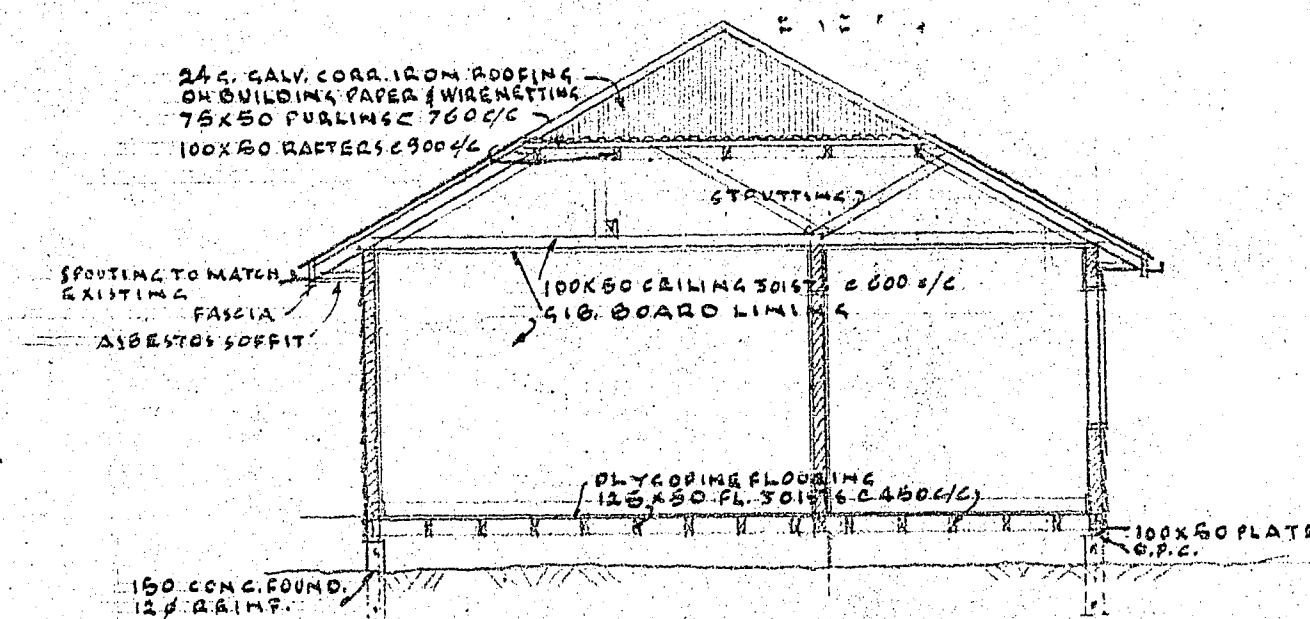 24 G. GALV. CORR. IRON ROOFING
ON BUILDING PAPER & WIRENETTING
75X50 PURLINS C 760 C/C
100X50 RAFTERS C 900 C/C
STRUTTING
SPOUTING TO MATCH
EXISTING
FASCIA
ASBESTOS SOFFIT
100X50 CEILING JOISTS C 600 C/C
GIB. BOARD LINING
PLYCOPINE FLOORING
125X50 FL. JOISTS C 450 C/C
100X50 PLATE
D.P.C.
150 CONC. FOUND.
12 Ø REINF.